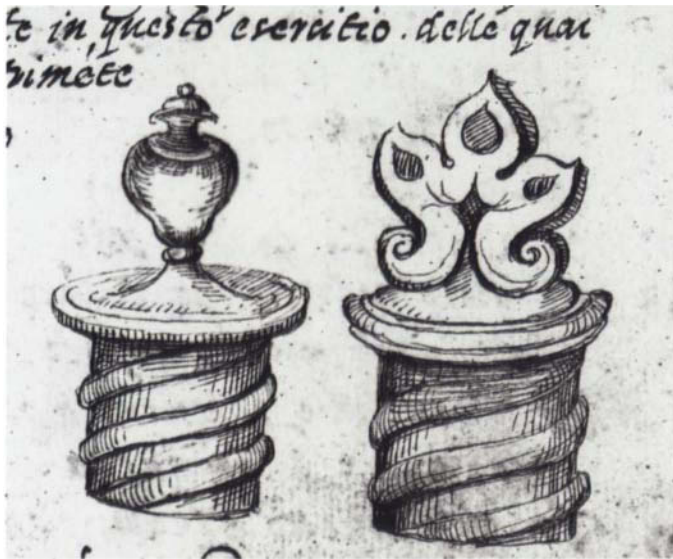 te in questo esercitio. delle quai
rimete